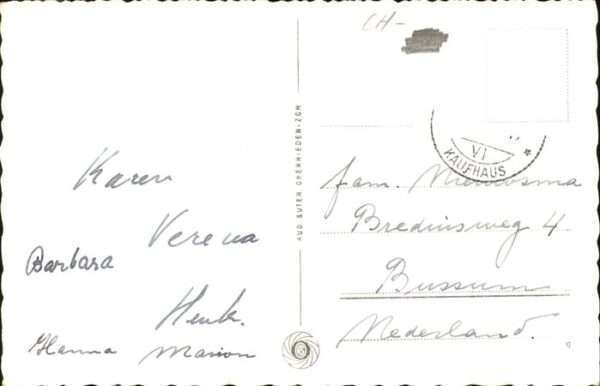 CH-
Karen
Verena
Barbara
Henk.
Hanna Marion
RUD. SUTER, OBERRIEDEN-ZCH
VI
KAUFHAUS *
fam.
Brediusweg 4.
Bussum
Nederland.